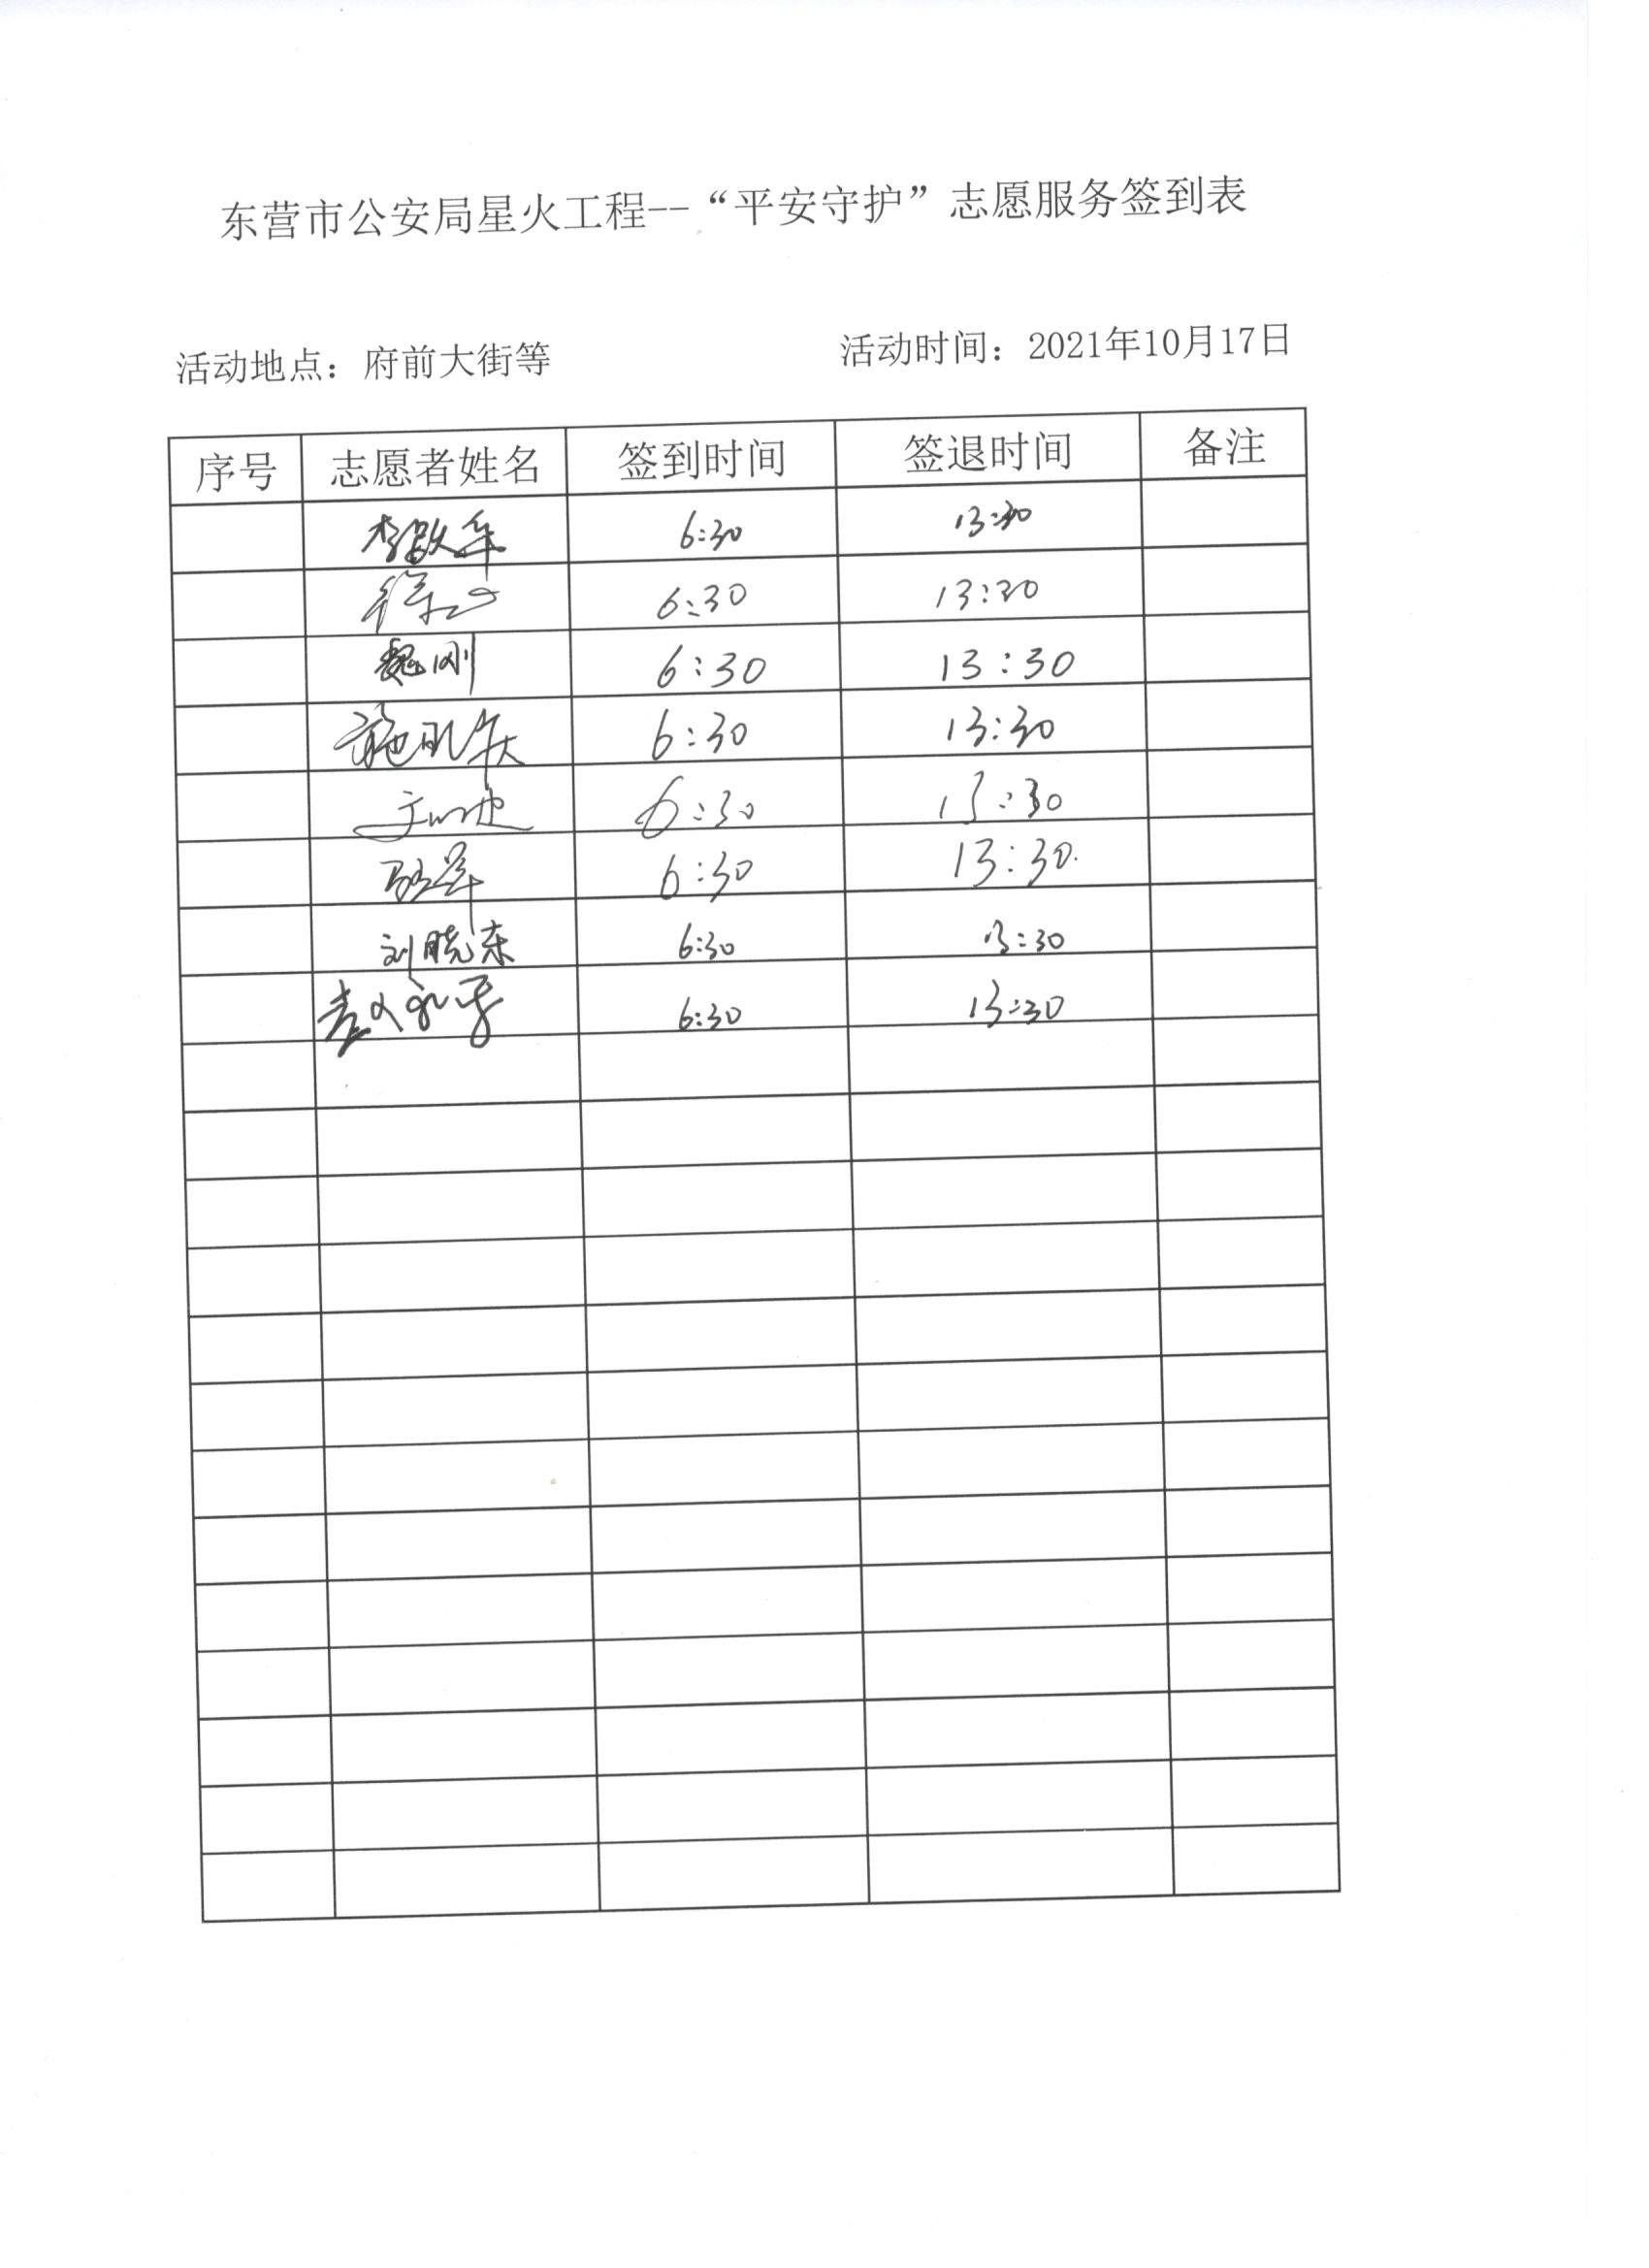 东营市公安局星火工程--“平安守护”志愿服务签到表
活动地点：府前大街等 活动时间：2021年10月17日
序号 志愿者姓名 签到时间 签退时间 备注
6:30 13:30
徐 6:30 13:30
魏刚 6:30 13:30
施 6:30 13:30
6:30 13:30
6:30 13:30
刘晓东 6:30 13:30
6:30 13:30